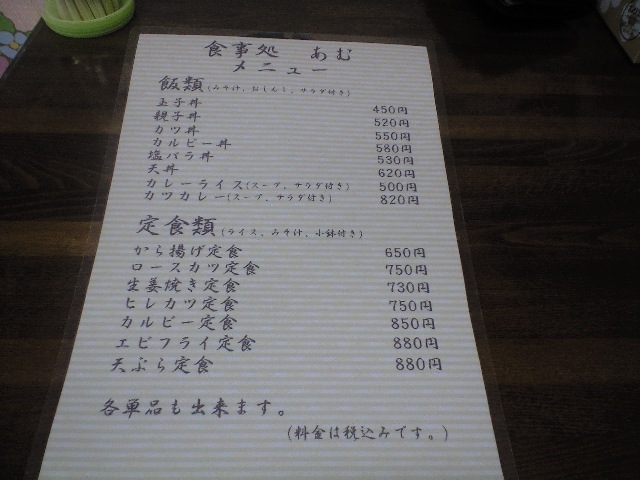 食事処 あむ
メニュー
飯類(みそ汁、おしんこ、サラダ付き)
玉子丼 450円
親子丼 520円
カツ丼 550円
カルビー丼 580円
塩バラ丼 530円
天丼 620円
カレーライス(スープ、サラダ付き) 500円
カツカレー(スープ、サラダ付き) 820円
定食類(ライス、みそ汁、小鉢付き)
から揚げ定食 650円
ロースカツ定食 750円
生姜焼き定食 730円
ヒレカツ定食 750円
カルビー定食 850円
エビフライ定食 880円
天ぷら定食 880円
各単品も出来ます。
(料金は税込みです。)